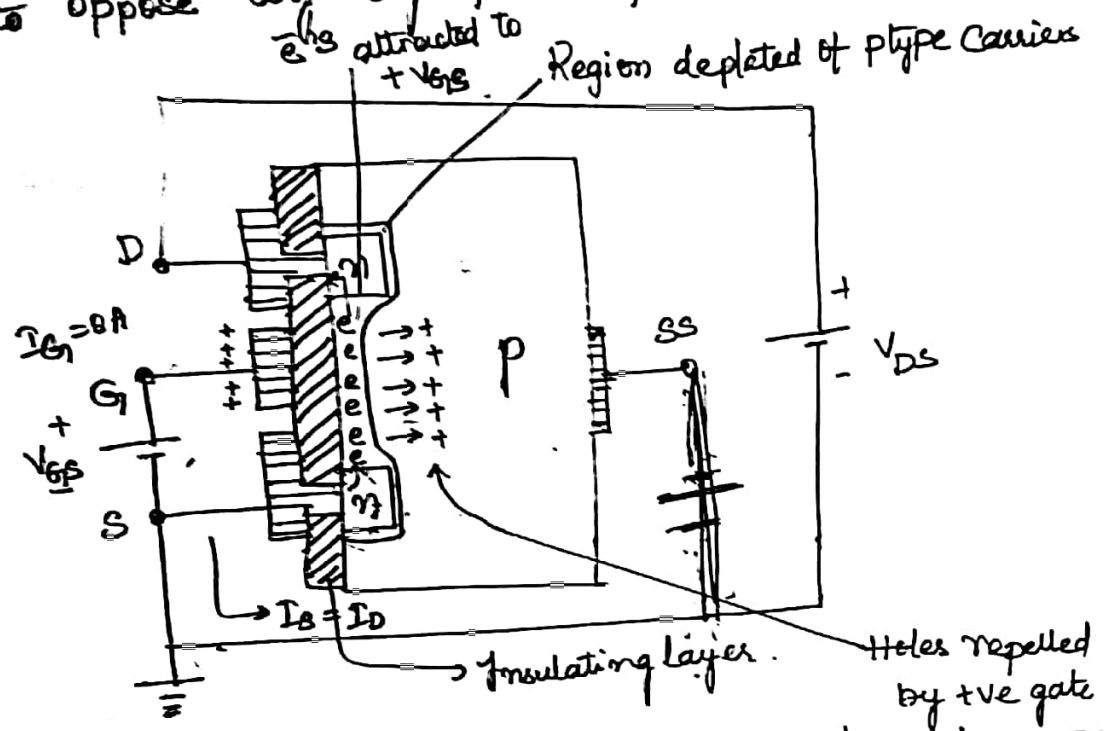 to oppose
e^ns attracted to
+ VGS
Region depleted of ptype Carriers
D
n
IG = 0A
+
+
+
+
+
G
+
VGS
e → +
e → +
e → +
e → +
e → +
e
P
SS
+
VDS
-
S
n
IS = ID
Insulating Layer.
Holes repelled
by +ve gate